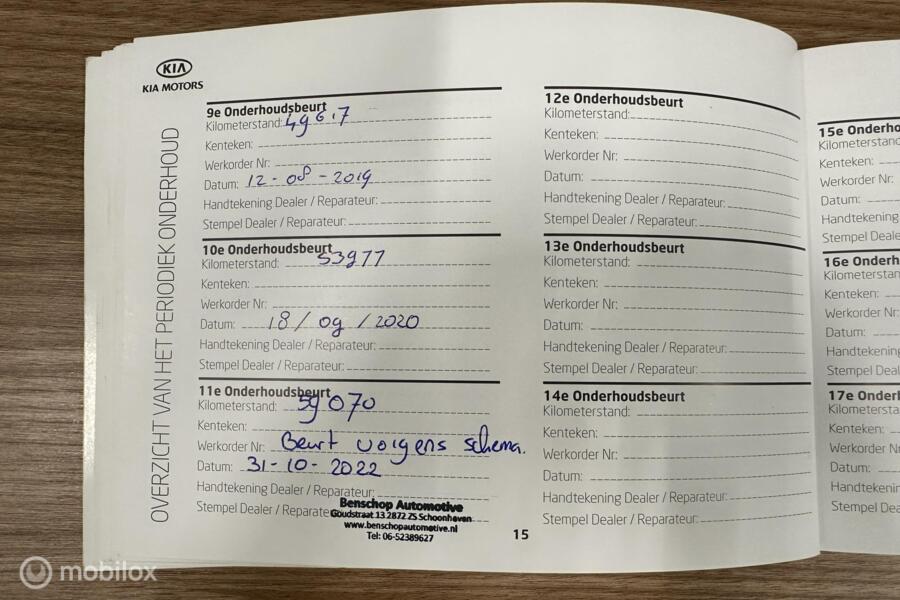 KIA
KIA MOTORS
OVERZICHT VAN HET PERIODIEK ONDERHOUD
9e Onderhoudsbeurt
Kilometerstand: 49617
Kenteken:
Werkorder Nr:
Datum: 12-08-2019
Handtekening Dealer / Reparateur:
Stempel Dealer / Reparateur:
10e Onderhoudsbeurt
Kilometerstand: 53977
Kenteken:
Werkorder Nr:
Datum: 18/09/2020
Handtekening Dealer / Reparateur:
Stempel Dealer / Reparateur:
11e Onderhoudsbeurt
Kilometerstand: 59070
Kenteken:
Werkorder Nr: Beurt volgens schema.
Datum: 31-10-2022
Handtekening Dealer / Reparateur:
Stempel Dealer / Reparate
Benschop Automotive
Goudstraat 13 2872 ZS Schoonhoven
www.benschopautomotive.nl
Tel: 06-52389627
15
12e Onderhoudsbeurt
Kilometerstand:
Kenteken:
Werkorder Nr:
Datum:
Handtekening Dealer / Reparateur:
Stempel Dealer / Reparateur:
13e Onderhoudsbeurt
Kilometerstand:
Kenteken:
Werkorder Nr:
Datum:
Handtekening Dealer / Reparateur:
Stempel Dealer / Reparateur:
14e Onderhoudsbeurt
Kilometerstand:
Kenteken:
Werkorder Nr:
Datum:
Handtekening Dealer / Reparateur:
Stempel Dealer / Reparateur:
15e Onderho
Kilometerstand
Kenteken:
Werkorder Nr:
Datum:
Handtekening
Stempel Deale
16e Onderh
Kilometerstan
Kenteken:
Werkorder Nr:
Datum:
Handtekening
Stempel Deale
17e Onderh
Kilometersta
Kenteken:
Werkorder N
Datum:
Handtekenin
Stempel Dea
mobilox